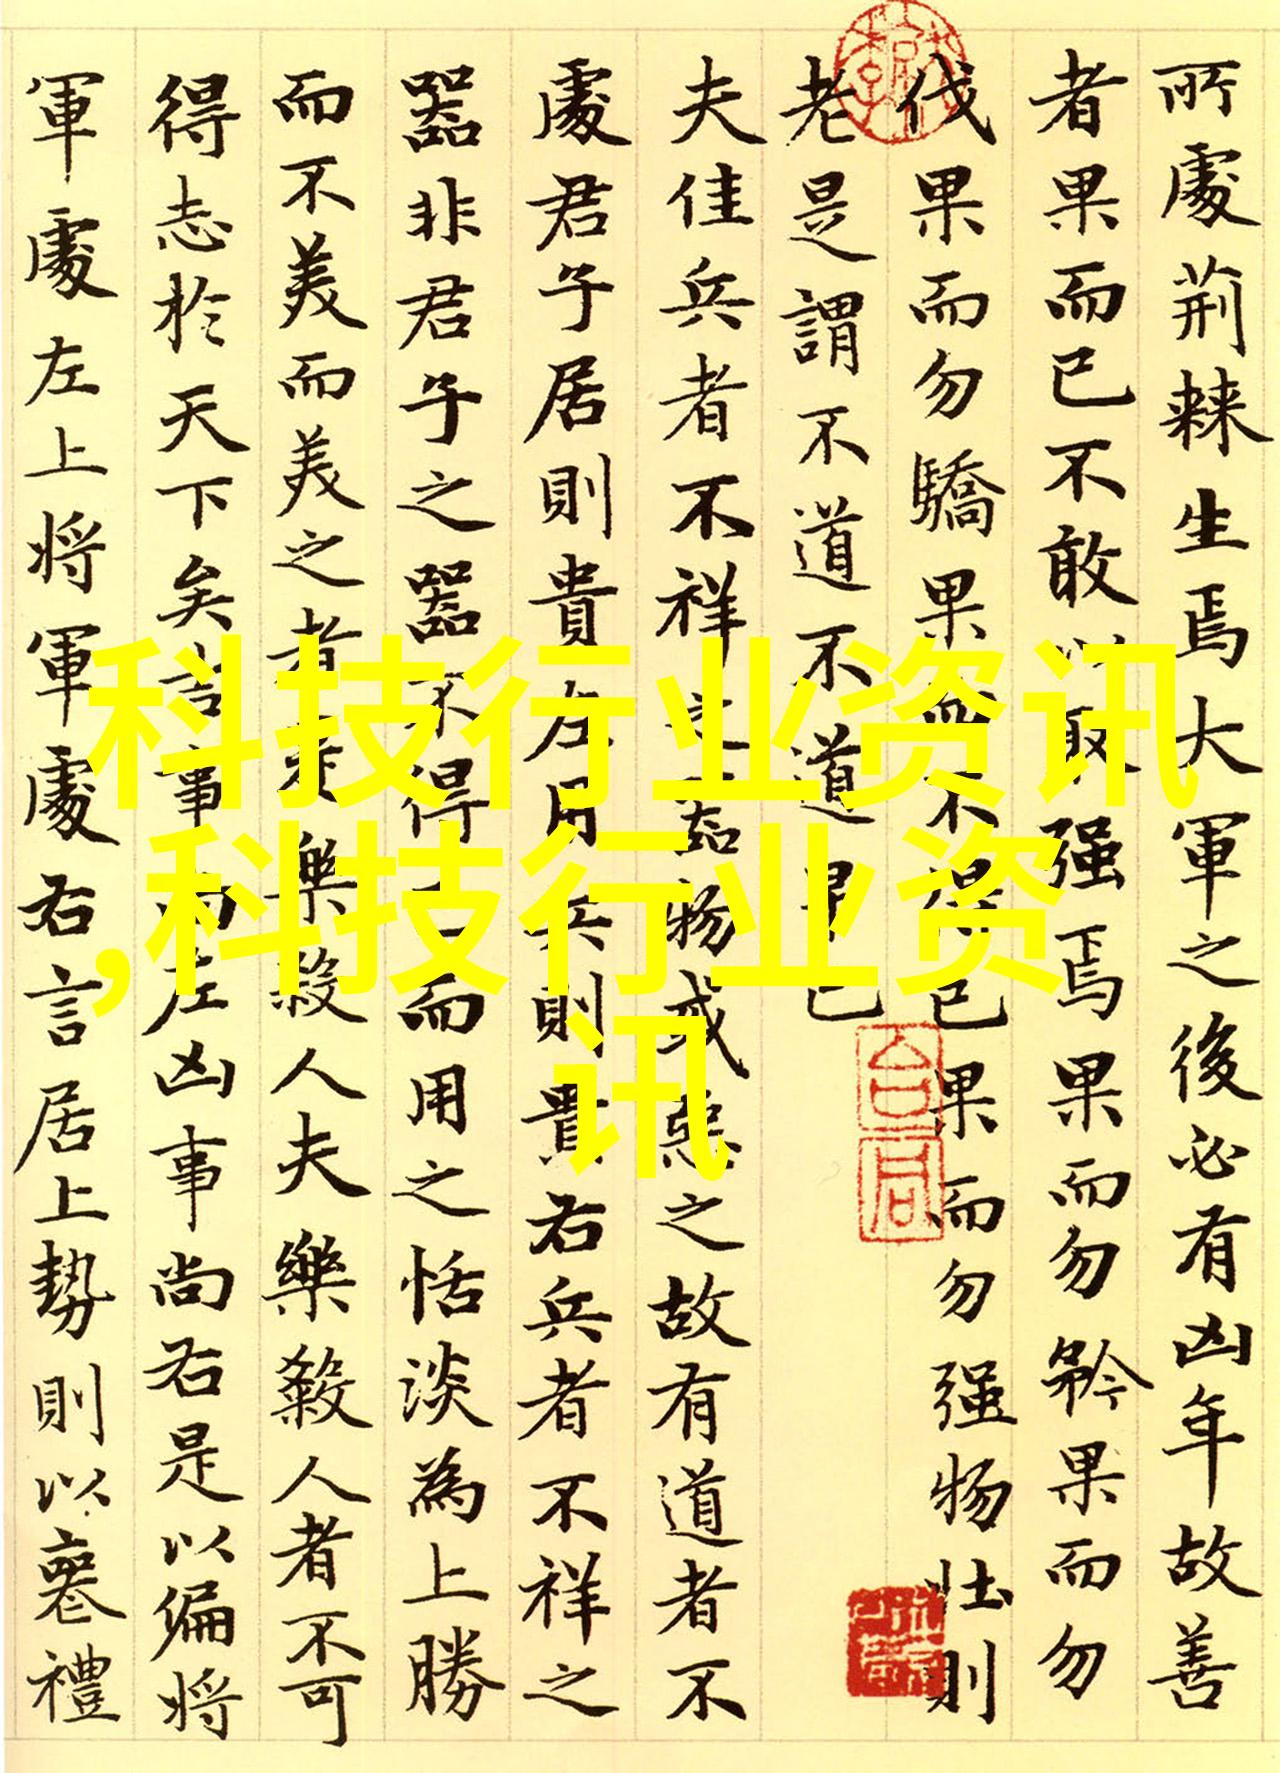 所處荊棘生焉大軍之後必有凶年故善
者果而已不敢以取强焉果而勿矜果而勿
伐果而勿驕果而不得已果而勿强物壯則
老是謂不道不道早已
夫佳兵者不祥之器物或惡之故有道者不
處君子居則貴左用兵則貴右兵者不祥之
器非君子之器不得已而用之恬淡為上勝
而不美而美之者是樂殺人夫樂樂殺人者不可
得志於天下矣吉事尚左凶事尚右是以偏將
軍處左上將軍處右言居上勢則以喪禮
科技行业资讯
,科技行业资
讯